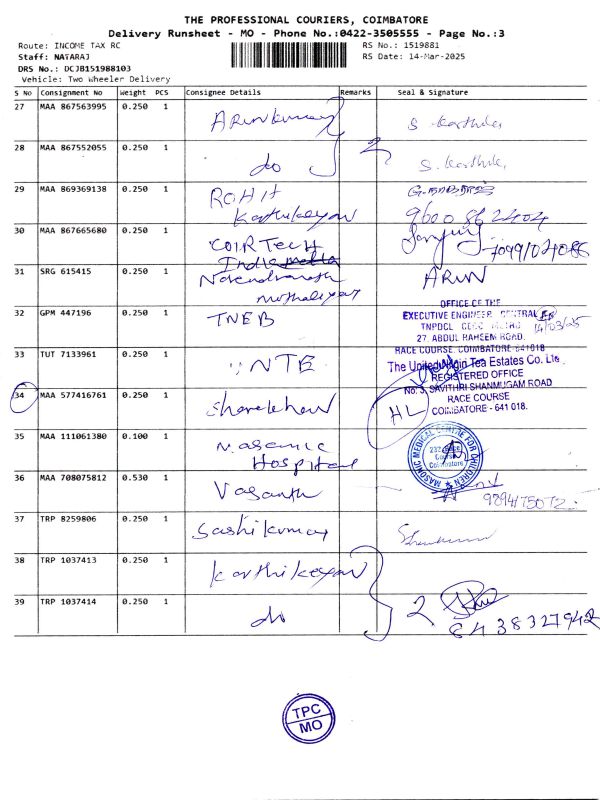 THE PROFESSIONAL COURIERS, COIMBATORE
Delivery Runsheet - MO - Phone No.:0422-3505555 - Page No.:3
Route: INCOME TAX RC
RS No.: 1519881
Staff: NATARAJ
RS Date: 14-Mar-2025
DRS No.: DCJB151988103
Vehicle: Two Wheeler Delivery
S No Consignment No Weight PCS Consignee Details Remarks Seal & Signature
27 MAA 867563995 0.250 1 Arunkumar S Karthike
28 MAA 867552055 0.250 1 do 2 S. Karthike
29 MAA 869369138 0.250 1 ROHIT
Karthikeyan 9600862404
30 MAA 867665680 0.250 1 COIRTECH
India 7099102086
31 SRG 615415 0.250 1 ARUN
32 GPM 447196 0.250 1 TNEB
OFFICE OF THE
EXECUTIVE ENGINEER CENTRAL
TNPDCL METRO 14/03/25
27, ABDUL RAHEEM ROAD,
RACE COURSE, COIMBATORE 641018
33 TUT 7133961 0.250 1 UNTE
The United Nilgiri Tea Estates Co. Ltd.,
REGISTERED OFFICE
No: 3, SAVITHRI SHANMUGAM ROAD
RACE COURSE
COIMBATORE - 641 018.
34 MAA 577416761 0.250 1 HL
35 MAA 111061380 0.100 1 Masonic
Hospital
MASONIC MEDICAL CENTRE FOR CHILDREN
Race
Course
Coimbatore
36 MAA 708075812 0.530 1 Vasanth
37 TRP 8259806 0.250 1 Sashikumar
38 TRP 1037413 0.250 1 Karthikeyan
39 TRP 1037414 0.250 1 do 2
8438327942
TPC
MO